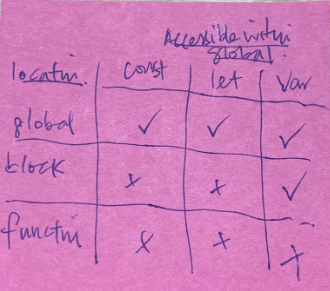 Accessible within
global.
location. const let var
global ✓ ✓ ✓
block x x ✓
function x x x